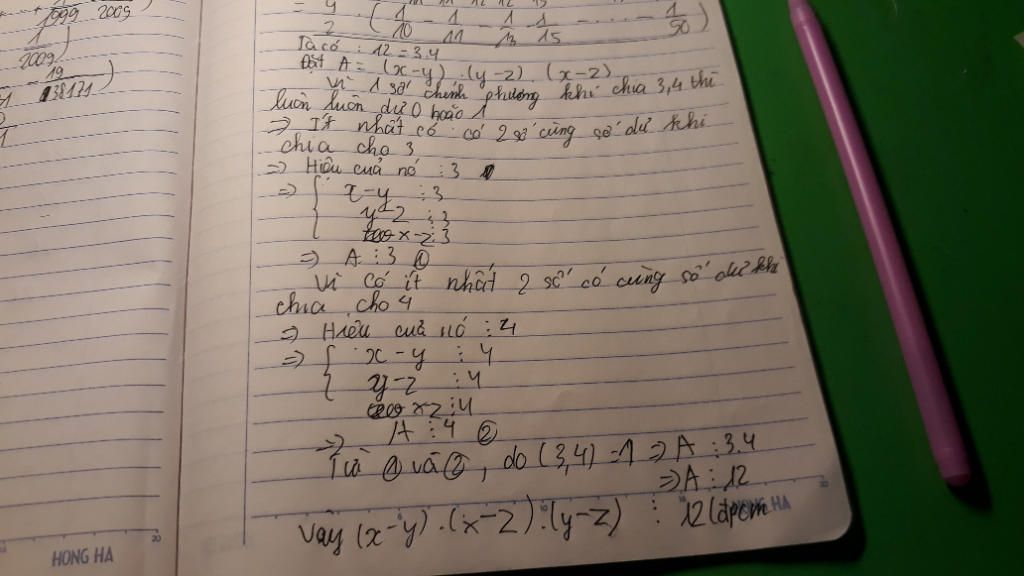 1999 2009
1
2009)
19
38171
= 4/2 . (1/10 - 1/11 - 1/13 - 1/15 - ... - 1/50)
Ta có : 12 = 3.4
Đặt A = (x-y) . (y-z) . (x-z)
Vì 1 số chính phương khi chia 3,4 thì
luôn luôn dư 0 hoặc 1
=> Ít nhất có có 2 số cùng số dư khi
chia cho 3
=> Hiệu của nó ⋮ 3
=> { x-y ⋮ 3
y-z ⋮ 3
x-z ⋮ 3
=> A ⋮ 3 ①
Vì có ít nhất 2 số có cùng số dư khi
chia cho 4
=> Hiệu của nó ⋮ 4
=> { x-y ⋮ 4
y-z ⋮ 4
x-z ⋮ 4
=> A ⋮ 4 ②
Từ ① và ②, do (3,4) = 1 => A ⋮ 3.4
=> A ⋮ 12
Vậy (x-y) . (x-z) . (y-z) ⋮ 12 (đpcm
HONG HA
HONG HA